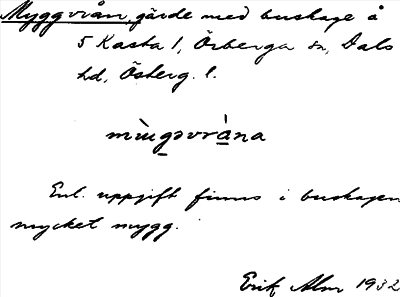 Myggvrån, gärde med buskage å
5 Kasta 1, Örberga sn, Dals
hd, Österg. l.
mìụgəvrà̱na
Enl. uppgift finns i buskagen
mycket mygg.
Erik Alm 1932